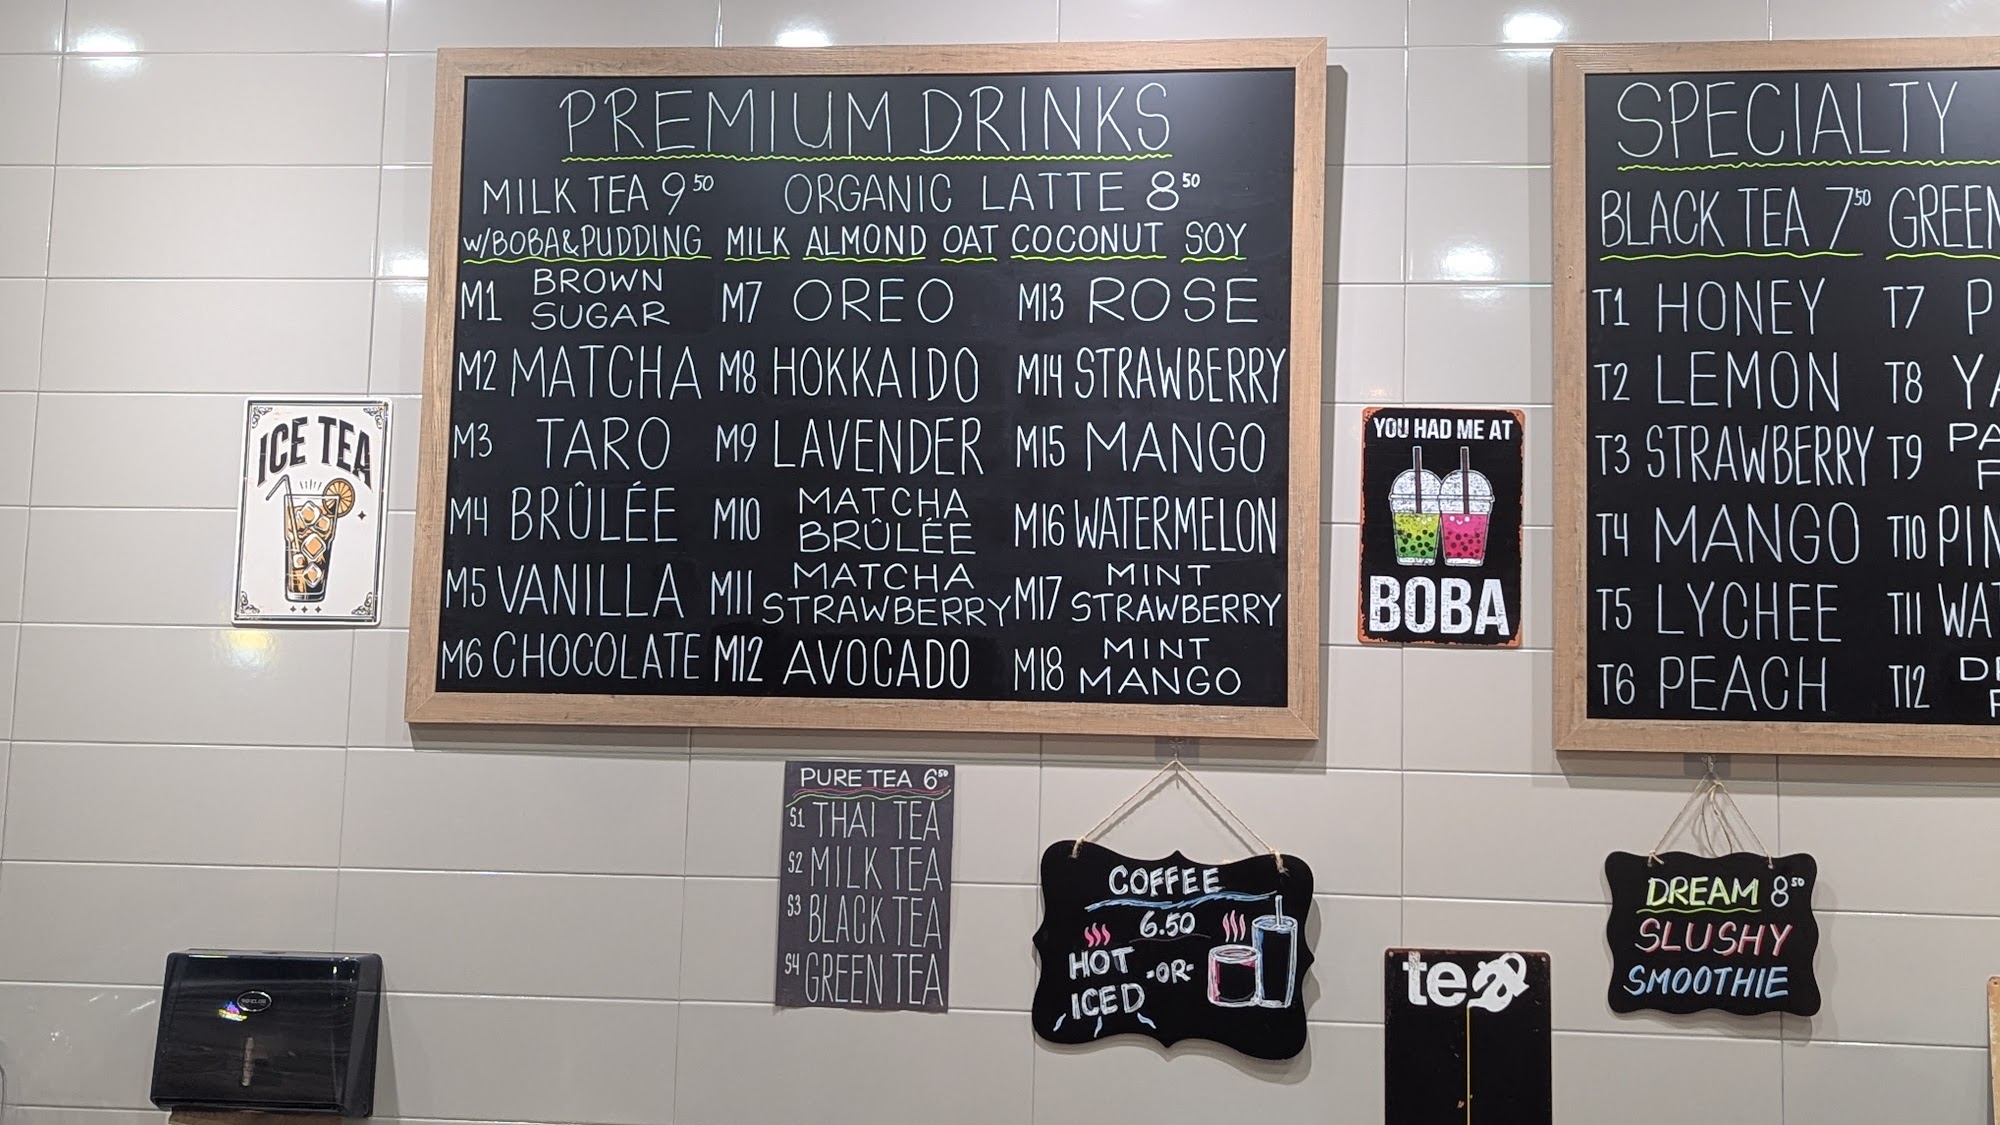 PREMIUM DRINKS
MILK TEA 9⁵⁰ ORGANIC LATTE 8⁵⁰
W/BOBA&PUDDING MILK ALMOND OAT COCONUT SOY
M1 BROWN SUGAR
M2 MATCHA
M3 TARO
M4 BRÛLÉE
M5 VANILLA
M6 CHOCOLATE
M7 OREO
M8 HOKKAIDO
M9 LAVENDER
M10 MATCHA BRÛLÉE
M11 MATCHA STRAWBERRY
M12 AVOCADO
M13 ROSE
M14 STRAWBERRY
M15 MANGO
M16 WATERMELON
M17 MINT STRAWBERRY
M18 MINT MANGO
SPECIALTY
BLACK TEA 7⁵⁰ GREEN
T1 HONEY
T2 LEMON
T3 STRAWBERRY
T4 MANGO
T5 LYCHEE
T6 PEACH
T7
T8
T9
T10
T11
T12
ICE TEA
YOU HAD ME AT
BOBA
PURE TEA 6⁵⁰
S1 THAI TEA
S2 MILK TEA
S3 BLACK TEA
S4 GREEN TEA
COFFEE
6.50
HOT
-OR-
ICED
tea
DREAM 8⁵⁰
SLUSHY
SMOOTHIE